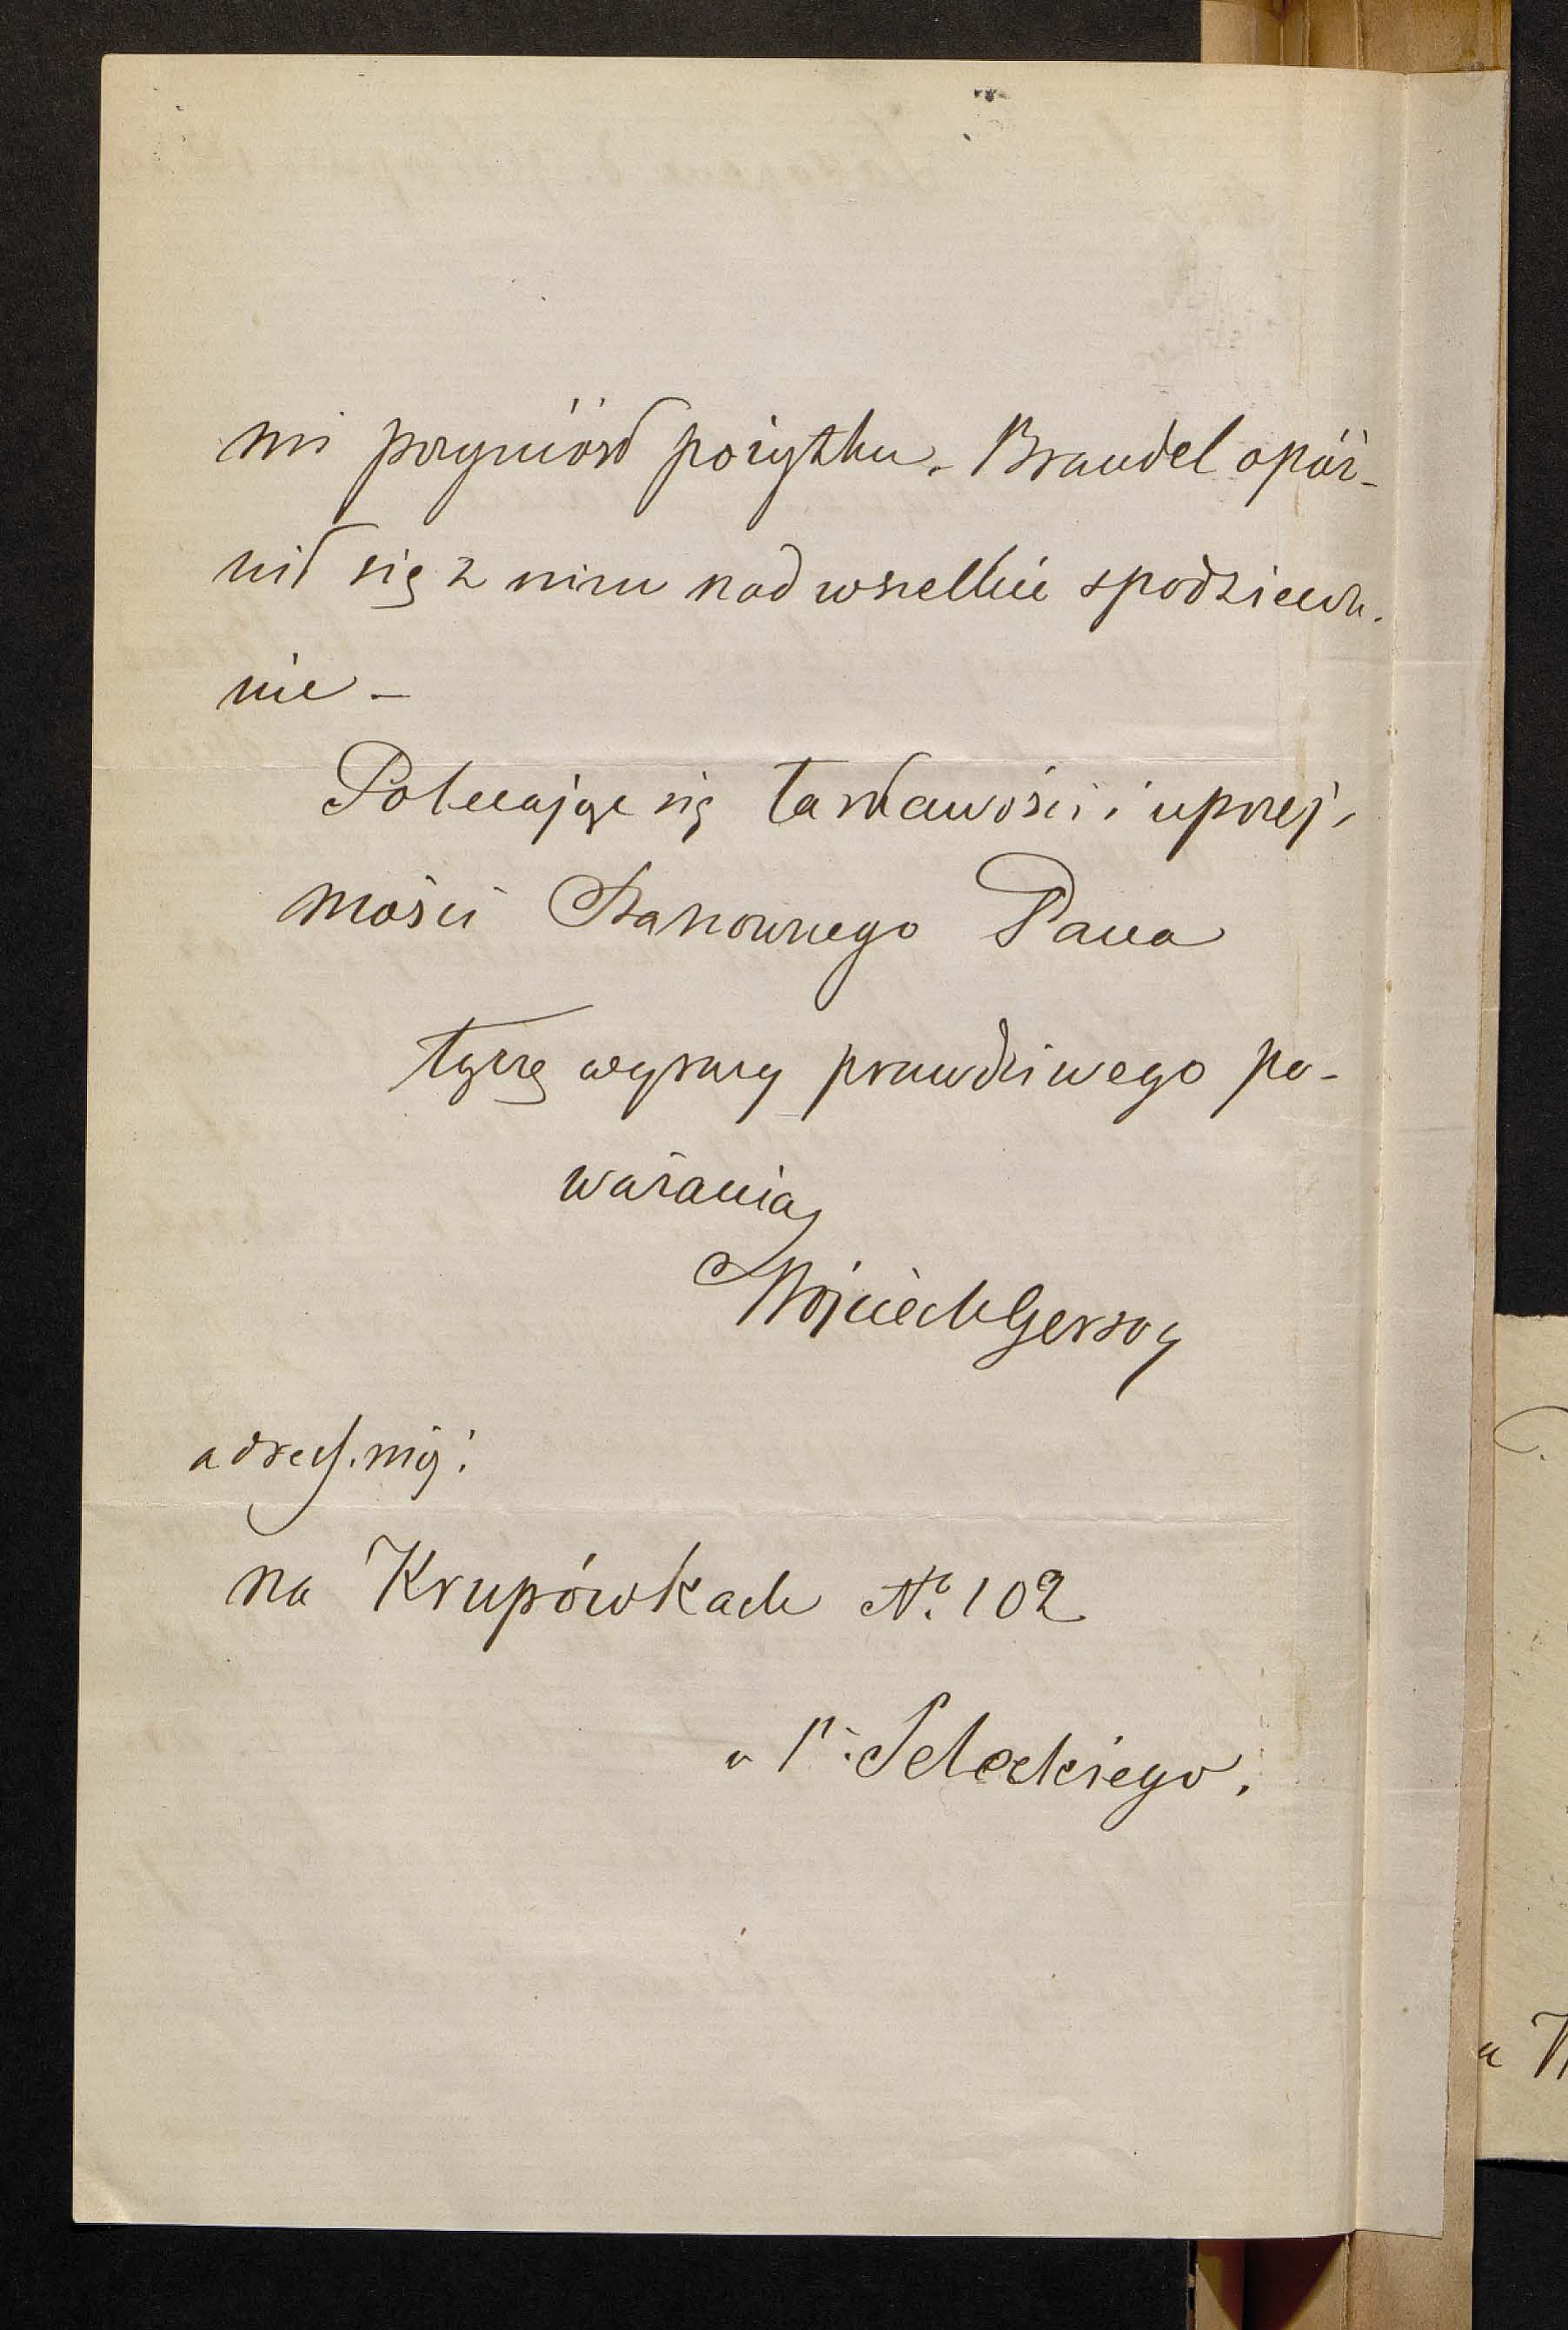 mi przyniósł pożytku. Brandel opóź-
nił się z nim nad wszelkie spodziewa-
nie –
Polecając się łaskawości i uprzej-
mości Szanownego Pana
łączę wyrazy prawdziwego po-
ważania
Wojciech Gerson
adres mój:
na Krupówkach No. 102
u P.